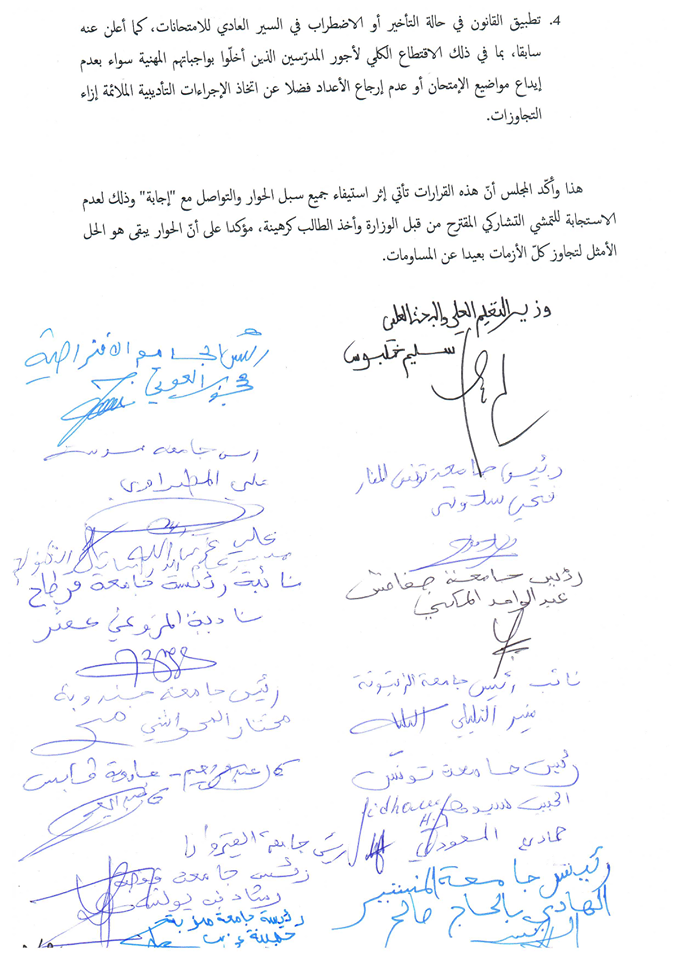 4. تطبيق القانون في حالة التأخير أو الاضطراب في السير العادي للامتحانات، كما أعلن عنه
سابقا، بما في ذلك الاقتطاع الكلي لأجور المدرّسين الذين أخلّوا بواجباتهم المهنية سواء بعدم
إيداع مواضيع الإمتحان أو عدم إرجاع الأعداد فضلا عن اتخاذ الإجراءات التأديبية الملائمة إزاء
التجاوزات.
هذا وأكّد المجلس أنّ هذه القرارات تأتي إثر استيفاء جميع سبل الحوار والتواصل مع "إجابة" وذلك لعدم
الاستجابة للتمشي التشاركي المقترح من قبل الوزارة وأخذ الطالب كرهينة، مؤكدا على أنّ الحوار يبقى هو الحل
الأمثل لتجاوز كلّ الأزمات بعيدا عن المساومات.
وزير التعليم العالي والبحث العلمي
سليم خلبوس
رئيس الجامعة الافتراضية
رئيس جامعة تونس المنار
فتحي سلاوتي
رئيس جامعة صفاقس
عبد الواحد المكني
نائب رئيس جامعة الزيتونة
منير التليلي
رئيس جامعة تونس
الحبيب سيدهم
حمادي المسعودي
رئيس جامعة المنستير
الهادي بالحاج صالح
رئيس جامعة سوسة
علي
نائبة رئيسة جامعة قرطاج
نادية المزوغي
رئيس جامعة جندوبة
مختار
جامعة قابس
رئيس جامعة القيروان
رئيس جامعة قفصة
رشاد بن يونس
رئيسة جامعة منوبة